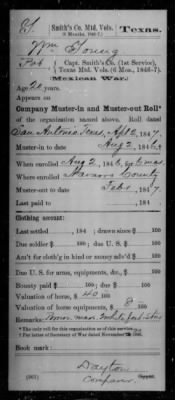 S. Smith's Co. Mtd. Vols. Texas.
(6 Months, 1846-7.)
Wm Young
Pvt, Capt. Smith's Co. (1st Service),
Texas Mtd. Vols. (6 Mos., 1846-7).
(Mexican War.)
Age 20 years.
Appears on
Company Muster-in and Muster-out Roll*
of the organization named above. Roll dated
San Antonio Texas, 2, 1847.
Muster-in to date Aug 2, 1846.
When enrolled Aug 2, 1846, 6 mos
Where enrolled Navarro County
Muster-out to date Feb 1, 1847.
Last paid to , 184 .
Clothing account:
Last settled , 184 ; drawn since $ 100
Due soldier $ 100; due U. S. $ 100
Am't for cloth'g in kind or money adv'd $ 100
Due U. S. for arms, equipments, &c., $ 100
Bounty paid $ 100; due $ 100
Valuation of horse, $ 40 100
Valuation of horse equipments, $ 8 100
Remarks:
*The only roll for this organization of this service.
Per letter of Secretary of War dated November 1846.
Book mark:
Dayton
(861) Copyist.